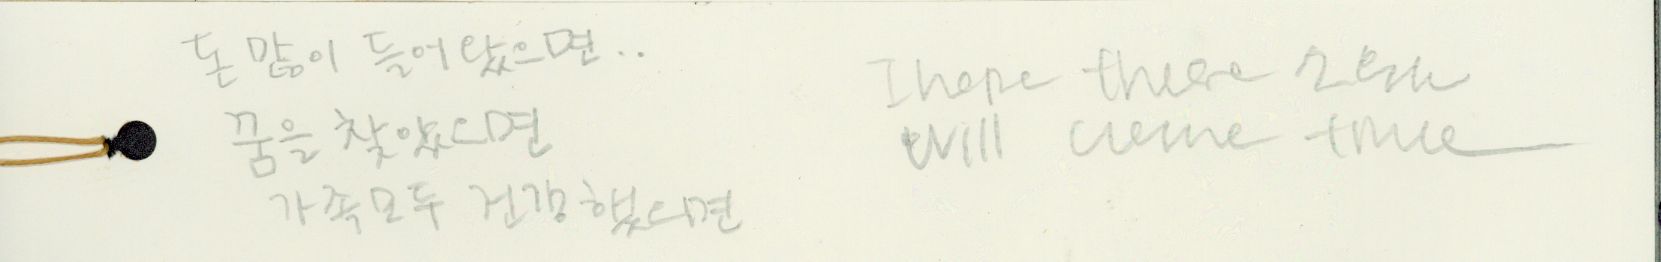 돈 많이 들어 왔으면..
꿈을 찾았으면
가족모두 건강했으면
I hope these
will come true